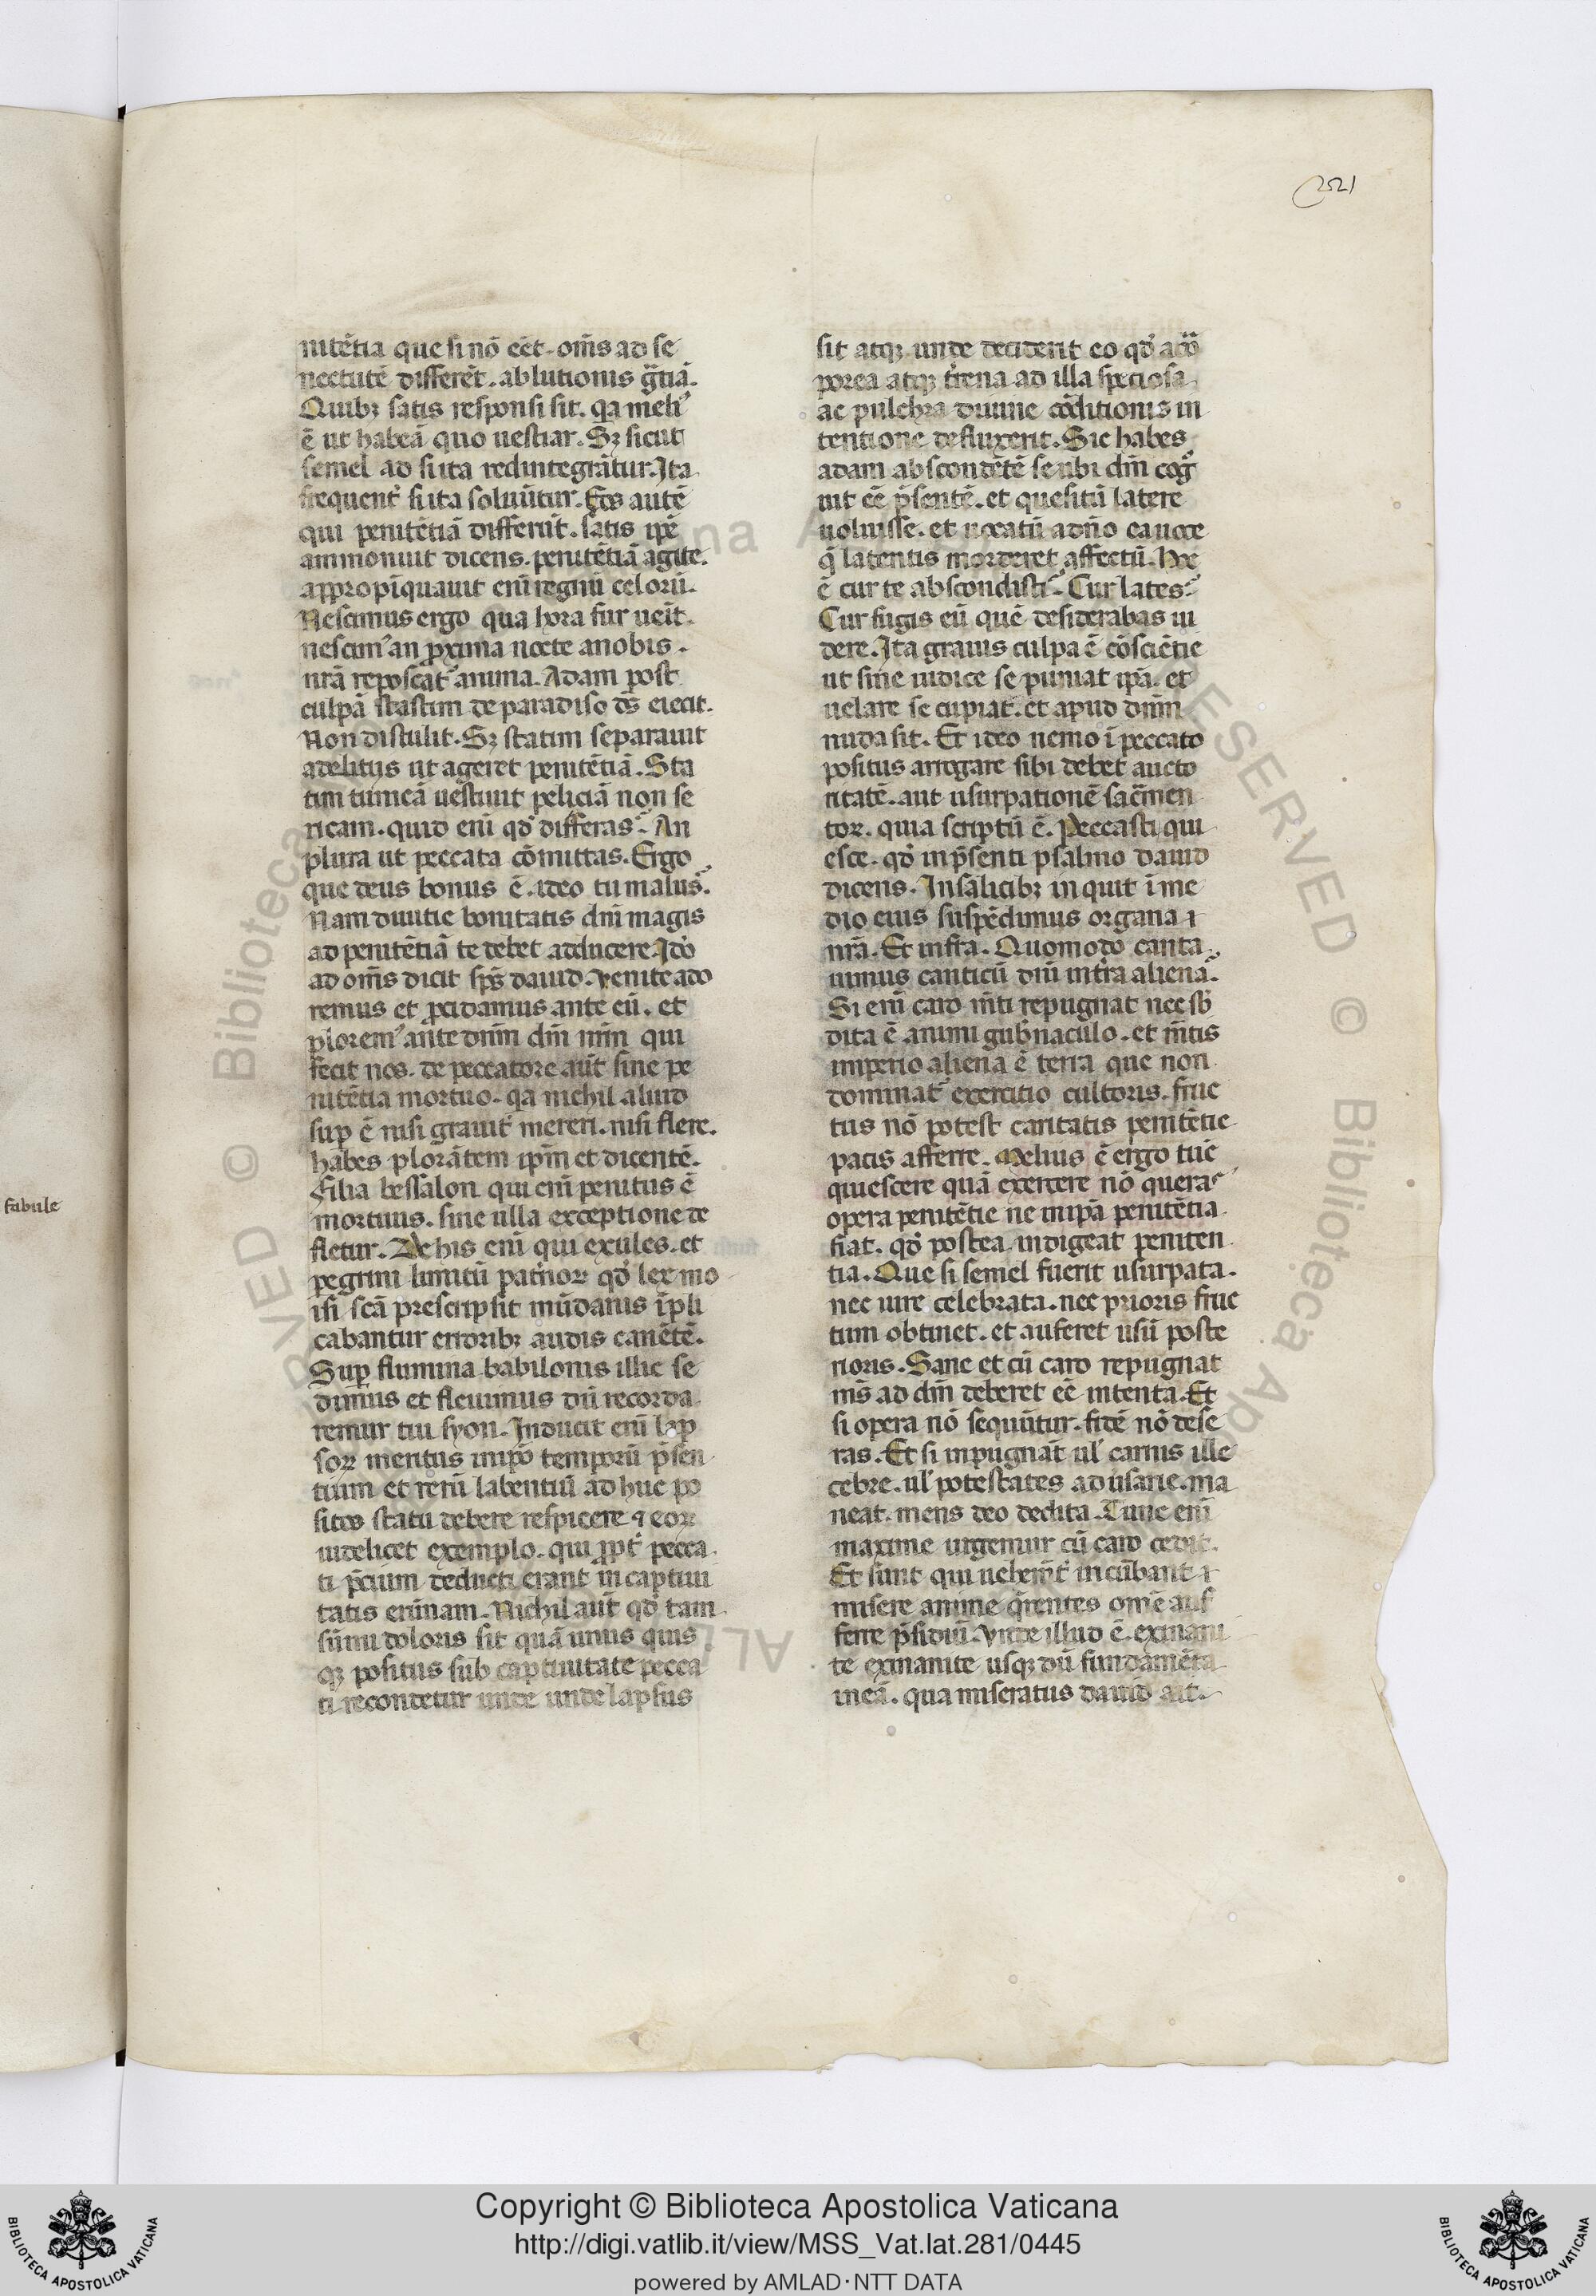 221
nitētia que si nō eēt. om̄s ad se
nectutē differēt. ablutionis gr̄tiā.
Quibꝫ satis responsi sit. qa meliꝰ
ē ut habeā quo uestiar. Sꝫ sicut
semel ad si ita redintegrātur. Ita
frequent̄ si ita soluūtur. Eos autē
qui penitētiā differūt. satis ip̄e
ammonuit dicens. penitētiā agite.
appropīquauit eni regnū celorū.
Nescimus ergo qua hora fur ueīt.
nescimꝰ an ꝓxima nocte a nobis.
nrā reposcat̄ anima. Adam post
culpā stastim de paradiso ds̄ eiecit.
Non distulit. Sꝫ statim separauit
a delitiis ut ageret penitētiā. Sta
tim tunicā uestiuit peliciā non se
ricam. quid eni qd̓ differas? An
plura ut peccata cōmittas. Ergo
que deus bonus ē. ideo tu malus?
Nam diuitie bonitatis dn̄i magis
ad penitētiā te debet adducere. Ido̓
ad om̄s dicit sps̄ dauid. Venite ado
remus et ꝓcidamus ante eū. et
ploremꝰ ante dn̄m dm̄ nrm̄ qui
fecit nos. de peccatore aūt sine pe
nitētia mortuo. qa nichil aliud
suꝑ ē nisi grauit̄ mereri. nisi flere.
habes plorātem ip̄m et dicentē.
Filia bessalon qui eni penitus ē
mortuus. sine ulla exceptione de
fletur. De his eni qui exules. et
ꝑegrini limitū pat̄norꝫ qd̓ lex mo
isi scā prescripsit mūdanis īpli
cabantur erroribꝫ audis canētē.
Suꝑ flumina babilonis illic se
dimus et fleuimus dū recorda
remur tui syon. Inducit eni lap
sorꝫ meritus inip̄o temporū p̄sen
tium et rerū labentiū ad huc po
sitos statu debere respicere ⁊ eorꝫ
uidelicet exemplo. qui ꝓpt̄ pecca
ti p̄cium deducti erant in captiui
tatis erūnam. Nichil aūt qd̓ tam
sūmi doloris sit quā unus quis
qꝫ positus sub captiuitate pecca
ti recordetur unde unde lapsus
sit atqꝫ unde deciderit eo qd̓ a cō
porea atqꝫ t̄rena ad illa speciosa
ac pulchra diuine cōditionis in
tentione defluxerit. Sic habes
adam abscondētē se ubi dm̄ cog̓
uit eē p̄sentē. et quesitū latere
uoluisse. et uocatū a dn̄o ea uoce
q̄ latentis morderet affectū. Hoc
ē cur te abscondisti? Cur lates?
Cur fugis eū quē desiderabas ui
dere. Ita grauis culpa ē cōsciētie
ut sine iudice se puniat ip̄a. et
uelare se cupiat. et apud dn̄m
nuda sit. Et ideo nemo ī peccato
positus arrogare sibi debet aucto
ritatē. aut usurpationē sac̄men
torꝫ. quia scriptū ē. Peccasti qui
esce. qd̓ in p̄senti psalmo dauid
dicens. In salicibꝫ inquit ī me
dio eius suspēdimus organa
nrā. Et infra. Quomodo canta
uimus canticū dn̄i in t̄ra aliena?
Si eni caro m̄ti repugnat nec sb̓
dita ē animi gub̄naculo. et m̄tis
imperio aliena ē terra que non
dominat̄ exercitio cultoris. fruc
tus nō potest caritatis penitētie
pacis afferre. Melius ē ergo tūc
quiescere quā exercere nō queras
opera penitētie ne in ip̄a penitētia
fiat. qd̓ postea indigeat peniten
tia. Que si semel fuerit usurpata.
nec iure celebrata. nec prioris fruc
tum obtinet. et auferet usū poste
rioris. Sane et cū caro repugnat
ms̄ ad dm̄ deberet eē intenta. Et
si opera nō sequūtur. fidē nō dese
ras. Et si inpugnāt ul̓ carnis ille
cebre. ul̓ potestates aduersarie. ma
neat mens deo dedita. Tunc eni
maxime urgemur cū caro cedit.
Et sunt qui uehem̄t̄ incūbant
misere anime q̄rentes om̄e auf
ferre p̄sidiū. Vnde illud ē. exinani
te exinanite usqꝫ dū fundamēta
in eā. qua miseratus dauid ait.
fabule
Copyright © Biblioteca Apostolica Vaticana
http://digi.vatlib.it/view/MSS_Vat.lat.281/0445
powered by AMLAD·NTT DATA